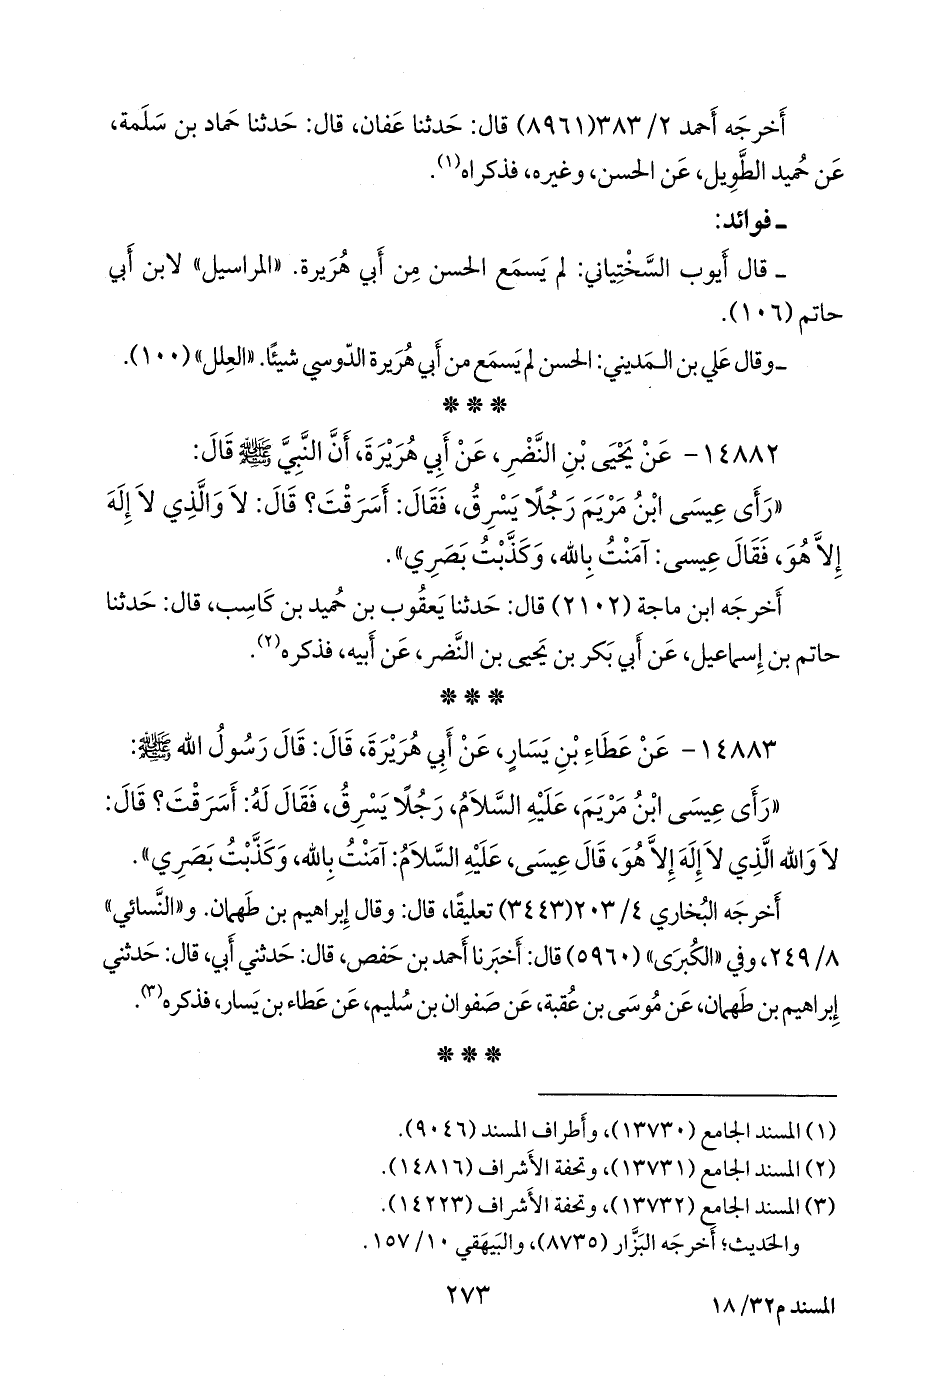 أَخرجَه أَحمد ٢/ ٣٨٣(٨٩٦١) قال: حَدثنا عَفان، قال: حَدثنا حَماد بن سَلَمة،
عَن حُميد الطَّوِيل، عَن الحسن، وغيره، فذكراه(١).
ـ فوائد:
ـ قال أَيوب السَّخْتِياني: لم يَسمَع الحسن مِن أَبي هُرَيرة. «المراسيل» لابن أَبي
حاتم (١٠٦).
ـ وقال عَلي بن المَديني: الحسن لم يَسمَع من أَبي هُرَيرة الدَّوسي شيئًا. «العِلل» (١٠٠).
* * *
١٤٨٨٢- عَنْ يَحْيَى بْنِ النَّضْرِ، عَنْ أَبِي هُرَيْرَةَ، أَنَّ النَّبِيَّ ﷺ قَالَ:
«رَأَى عِيسَى ابْنُ مَرْيَمَ رَجُلًا يَسْرِقُ، فَقَالَ: أَسَرَقْتَ؟ قَالَ: لاَ وَالَّذِي لاَ إِلَهَ
إِلاَّ هُوَ، فَقَالَ عِيسى: آمَنْتُ بِالله، وَكَذَّبْتُ بَصَرِي».
أَخرجَه ابن ماجة (٢١٠٢) قال: حَدثنا يَعقُوب بن حُميد بن كَاسِب، قال: حَدثنا
حاتم بن إِسماعيل، عَن أَبي بَكر بن يَحيى بن النَّضر، عَن أَبيه، فذكره(٢).
* * *
١٤٨٨٣- عَنْ عَطَاءِ بْنِ يَسَارٍ، عَنْ أَبِي هُرَيْرَةَ، قَالَ: قَالَ رَسُولُ الله ﷺ:
«رَأَى عِيسَى ابْنُ مَرْيَمَ، عَلَيْهِ السَّلاَمُ، رَجُلًا يَسْرِقُ، فَقَالَ لَهُ: أَسَرَقْتَ؟ قَالَ:
لاَ وَالله الَّذِي لاَ إِلَهَ إِلاَّ هُوَ، قَالَ عِيسَى، عَلَيْهِ السَّلاَمُ: آمَنْتُ بِالله، وَكَذَّبْتُ بَصَرِي».
أَخرجَه البُخاري ٤/ ٢٠٣(٣٤٤٣) تعليقًا، قال: وقال إِبراهيم بن طَهمان. و«النَّسائي»
٨/ ٢٤٩، وفي «الكُبرَى» (٥٩٦٠) قال: أَخبَرنا أَحمد بن حَفص، قال: حَدثني أَبي، قال: حَدثني
إِبراهيم بن طَهمان، عَن مُوسَى بن عُقبة، عَن صَفوان بن سُليم، عَن عطاء بن يَسار، فذكره(٣).
* * *
(١) المسند الجامع (١٣٧٣٠)، وأَطراف المسند (٩٠٤٦).
(٢) المسند الجامع (١٣٧٣١)، وتحفة الأَشراف (١٤٨١٦).
(٣) المسند الجامع (١٣٧٣٢)، وتحفة الأَشراف (١٤٢٢٣).
والحَديث؛ أَخرجَه البَزَّار (٨٧٣٥)، والبَيهَقي ١٠/ ١٥٧.
٢٧٣
المسند م٣٢/ ١٨